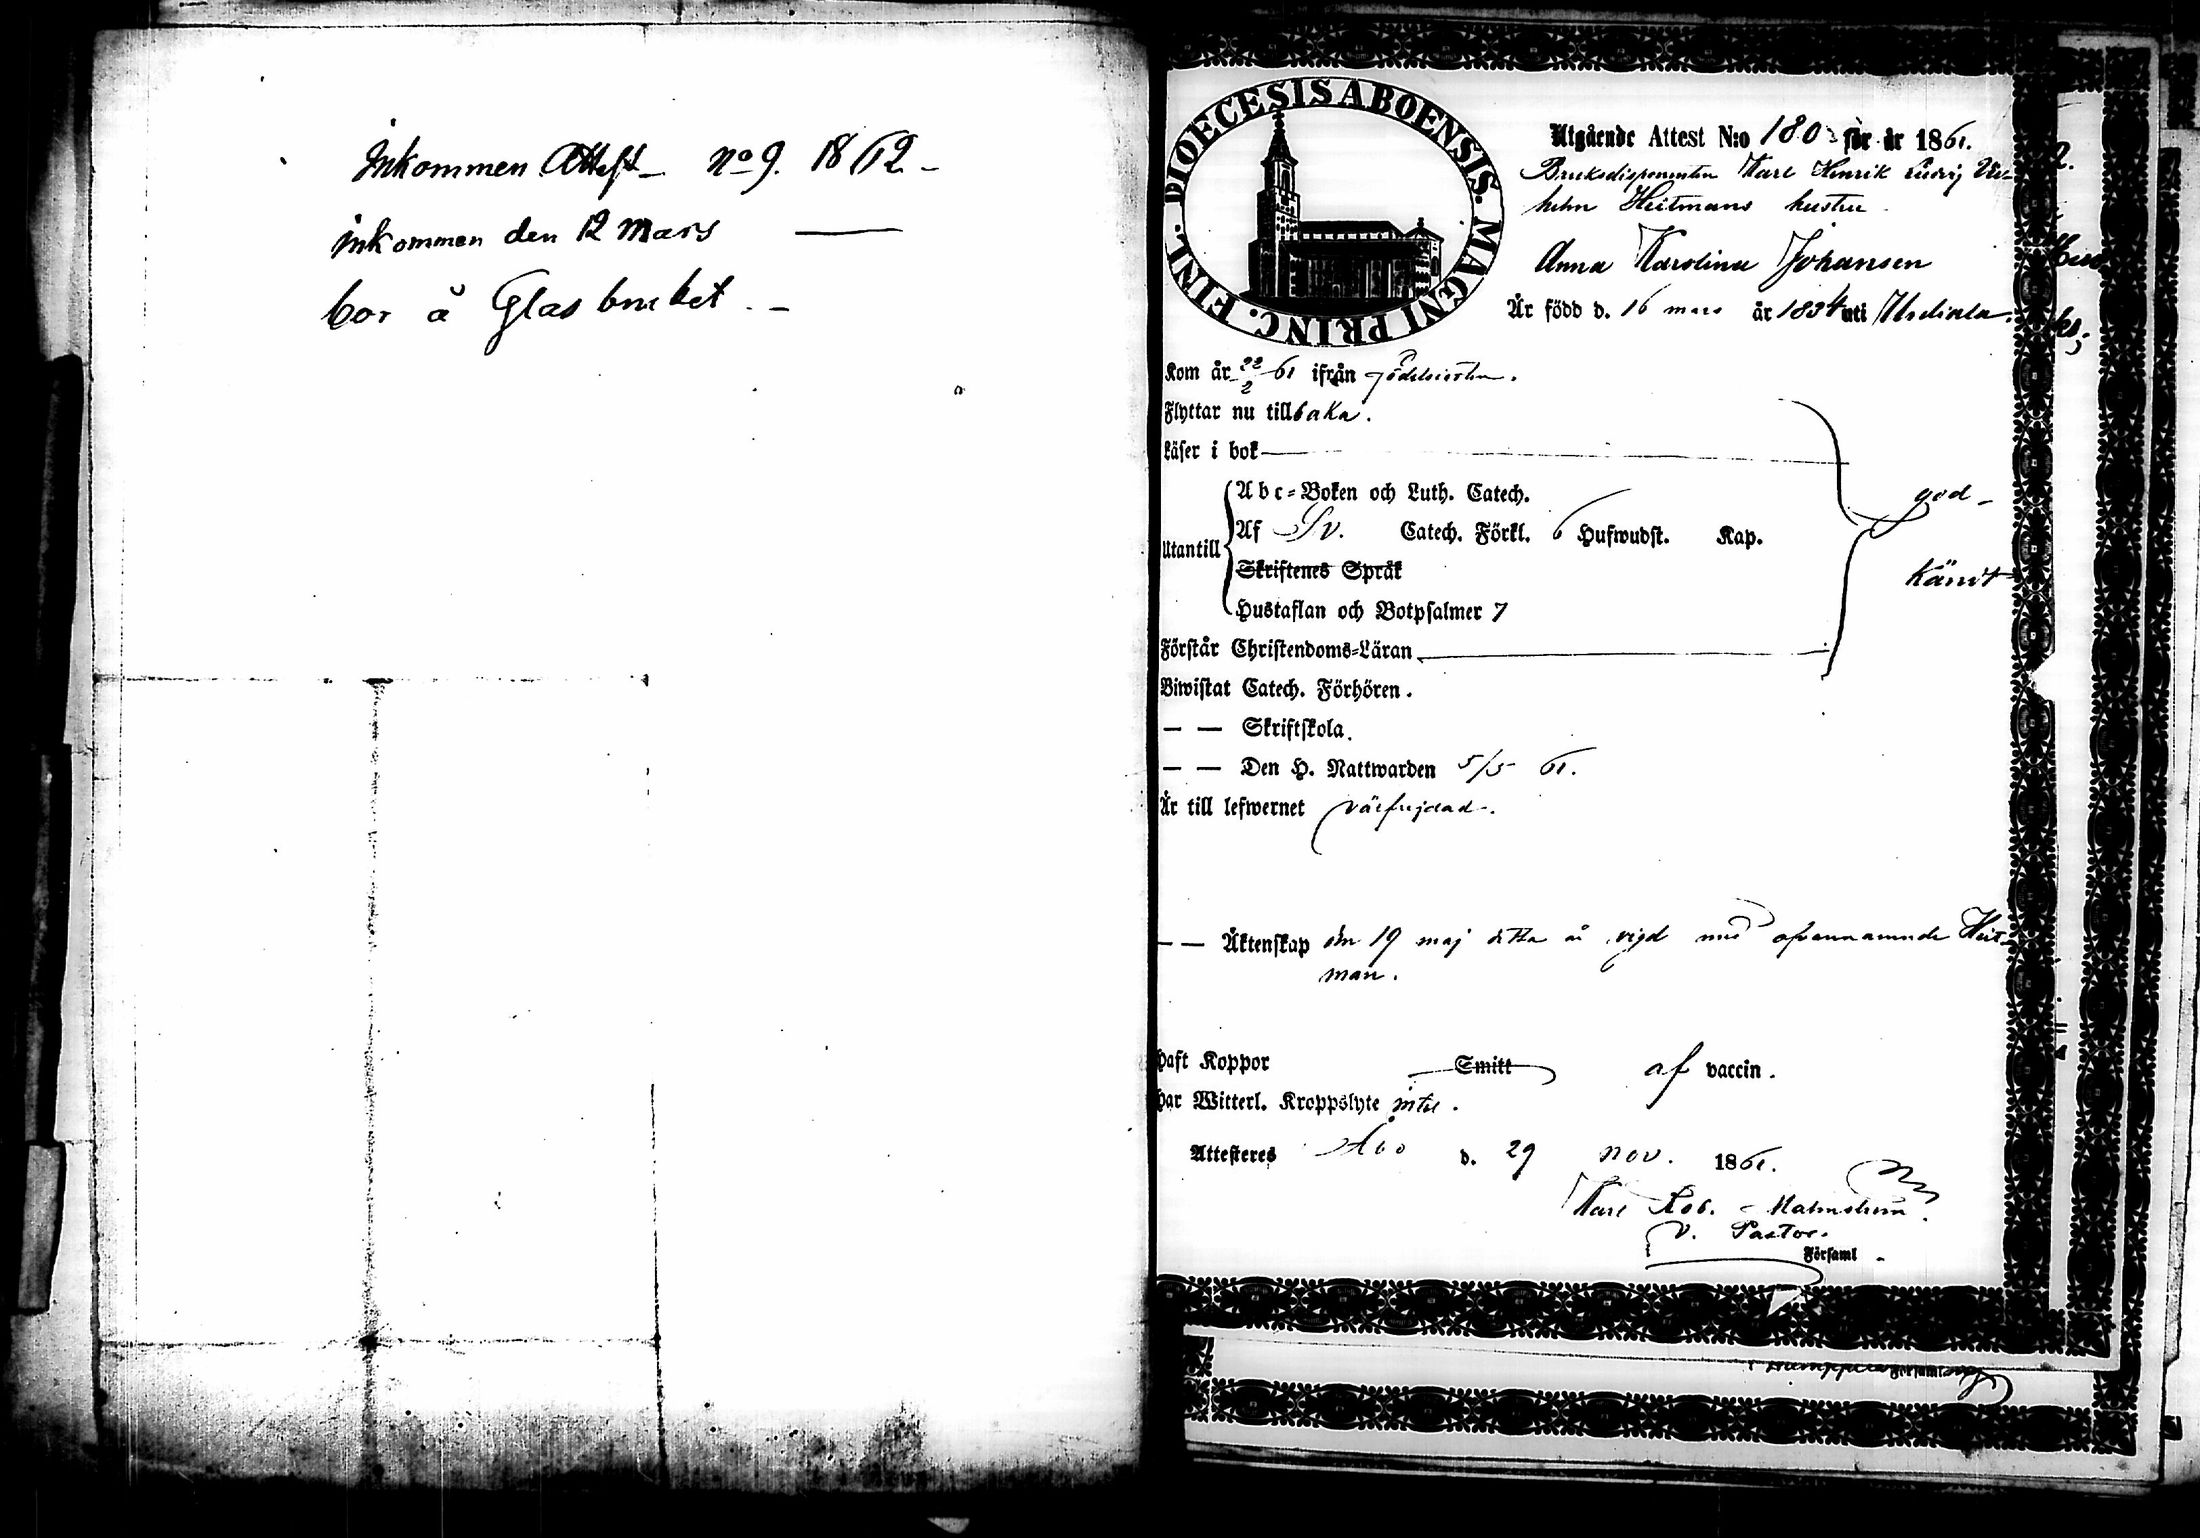 Inkommen Attest – No 9. 1862 –
inkommen den 12 Mars —
bor å Glasbruket. –
DIOECESIS ABOENSIS. MAGNI PRINC. FINL.
Utgående Attest N:o 180 för år 1861.
Bruksdisponenten Karl Henrik Ludvig Vil-
helm Heitmans hustru
Anna Karolina Johansen
Är född d. 16 mars år 1834 uti Urdiala.
Kom år 22/2 61 ifrån
Flyttar nu tillbaka.
Läser i bok
Utantill
Abc-Boken och Luth. Catech.
Af Sv. Catech. Förkl. 6 Hufwudst. Kap.
Skriftenes Språk
Hustaflan och Botpsalmer 7
god-
känt
Förstår Christendoms-Läran
Biwistat Catech. Förhören.
— — Skriftskola.
— — Den H. Nattwarden 5/5 61.
Är till lefwernet välfrejdad.
— — Äktenskap den 19 maj detta år vigd med ofvannämnde Heit-
man.
Haft Koppor Smitt af vaccin.
Har Witterl. Kroppslyte intet.
Attesteres Åbo d. 29 nov. 1861.
Karl Rob. Malmström
V. Pastor.
Församl
Församl